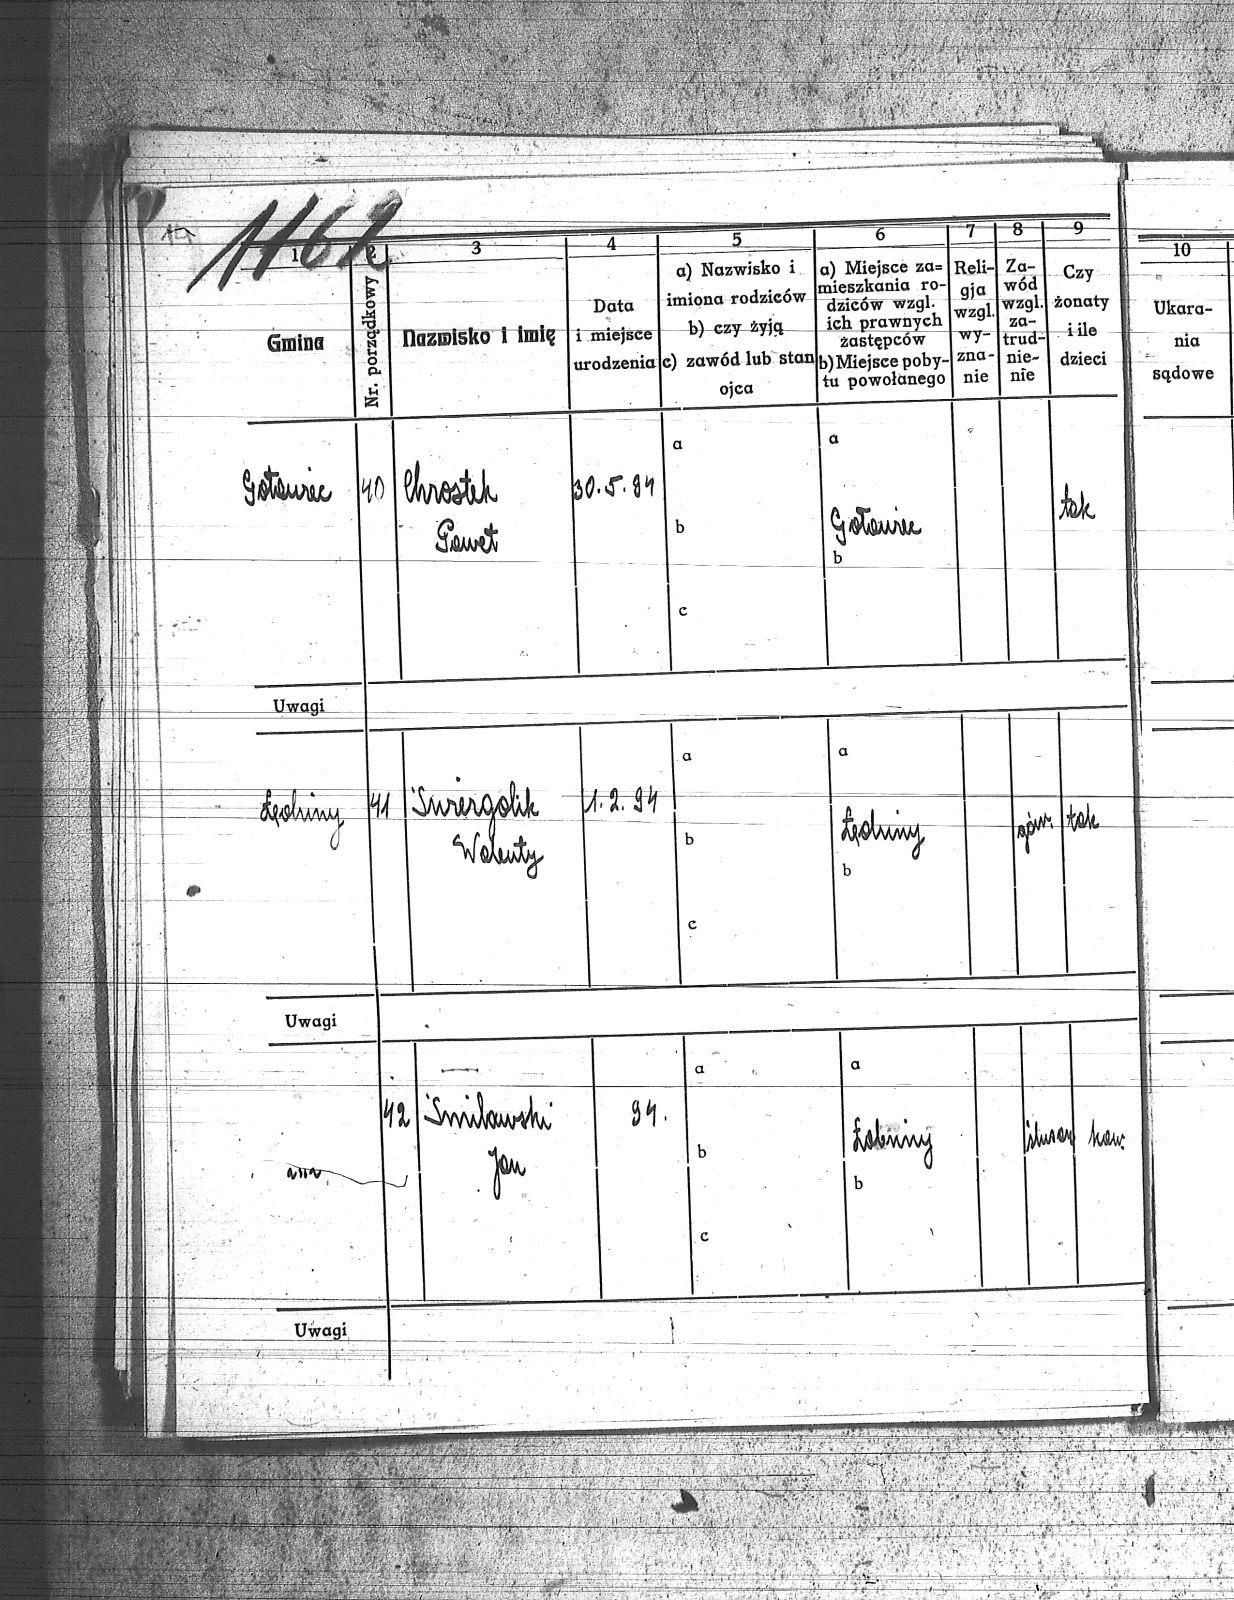 1162
1
2
3
4
5
6
7
8
9
10
Gmina
Nr. porządkowy
Nazwisko i imię
Data
i miejsce
urodzenia
a) Nazwisko i
imiona rodziców
b) czy żyją
c) zawód lub stan
ojca
a) Miejsce za=
mieszkania ro-
dziców wzgl.
ich prawnych
zastępców
b) Miejsce poby-
tu powołanego
Reli-
gja
wzgl.
wy-
zna-
nie
Za-
wód
wzgl.
za-
trud-
nie-
nie
Czy
żonaty
i ile
dzieci
Ukara-
nia
sądowe
Gotawiec
40
Chrostek
Paweł
30.5.94
a
b
c
a
Gotawiec
b
tak
Uwagi
Lędziny
41
Świergolik
Walenty
1.2.94
a
b
c
a
Lędziny
b
gór.
tak
Uwagi
42
Śmiłowski
Jan
94.
a
b
c
a
b
ślusarz
kaw.
Uwagi